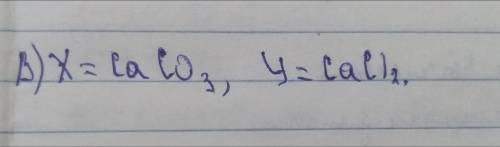 В) X = CaCO₃, Y = CaCl₂.